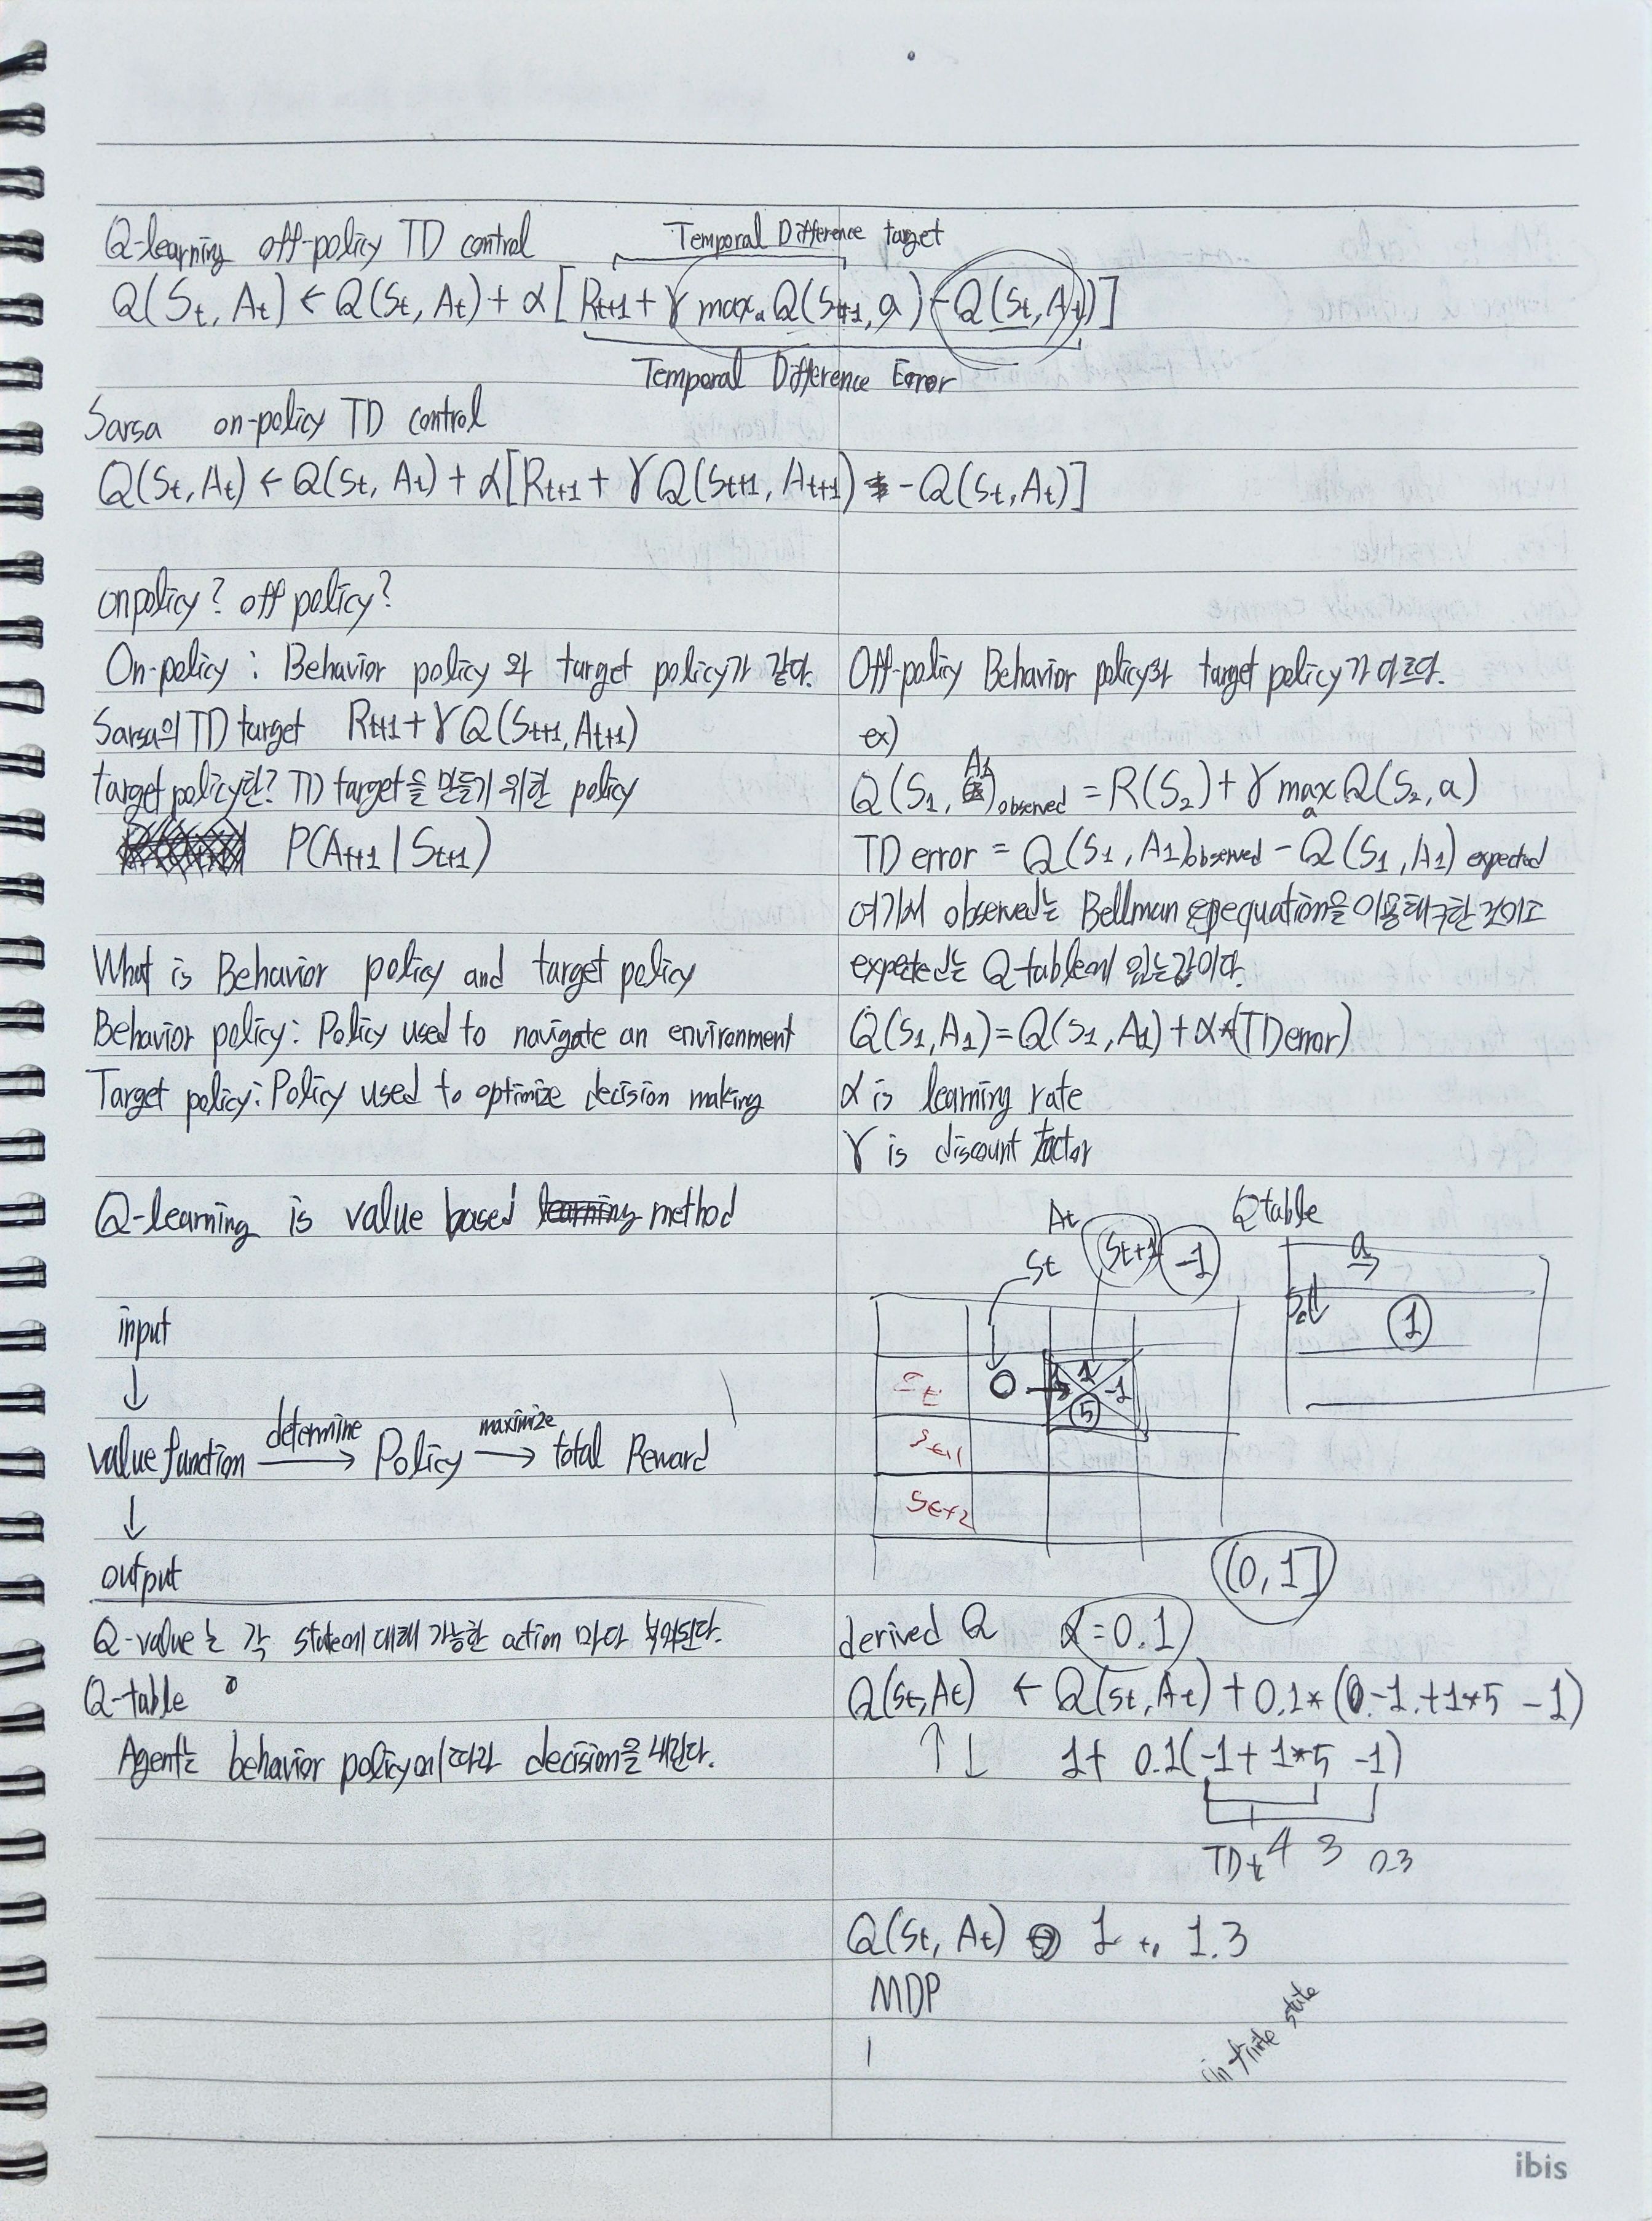 Q-learning off-policy TD control
Temporal Difference target
Q(St, At) ← Q(St, At) + α[Rt+1 + γ maxa Q(St+1, a) - Q(St, At)]
Temporal Difference Error
Sarsa on-policy TD control
Q(St, At) ← Q(St, At) + α[Rt+1 + γQ(St+1, At+1) - Q(St, At)]
on policy? off policy?
On-policy : Behavior policy 와 target policy가 같다.
Sarsa의 TD target Rt+1 + γQ(St+1, At+1)
target policy란? TD target을 만들기 위한 policy
P(At+1 | St+1)
What is Behavior policy and target policy
Behavior policy: Policy used to navigate an environment
Target policy: Policy used to optimize decision making
Q-learning is value based method
input
↓
value function determine → Policy maximize → total Reward
↓
output
Q-value는 각 state에 대해 가능한 action 마다 부여된다.
Q-table
Agent는 behavior policy에 따라 decision을 내린다.
Off-policy Behavior policy와 target policy가 다르다.
ex)
Q(S1, A1)observed = R(S2) + γ max a Q(S2, a)
TD error = Q(S1, A1)observed - Q(S1, A1) expected
여기서 observed는 Bellman equation을 이용해 구한 것이고
expected는 Q table에 있는 값이다.
Q(S1, A1) = Q(S1, A1) + α*(TD error)
α is learning rate
γ is discount factor
At
St
St+1
-1
Q table
a →
↓
1
St
O →
1
1
-1
5
St+1
St+2
(0, 1]
derived Q α = 0.1
Q(St, At) ← Q(St, At) + 0.1*(-1 + 1*5 - 1)
↑↓ 1 + 0.1(-1 + 1*5 -1)
TDt 4 3 0.3
Q(St, At) 1 to 1.3
MDP
infinite state
ibis